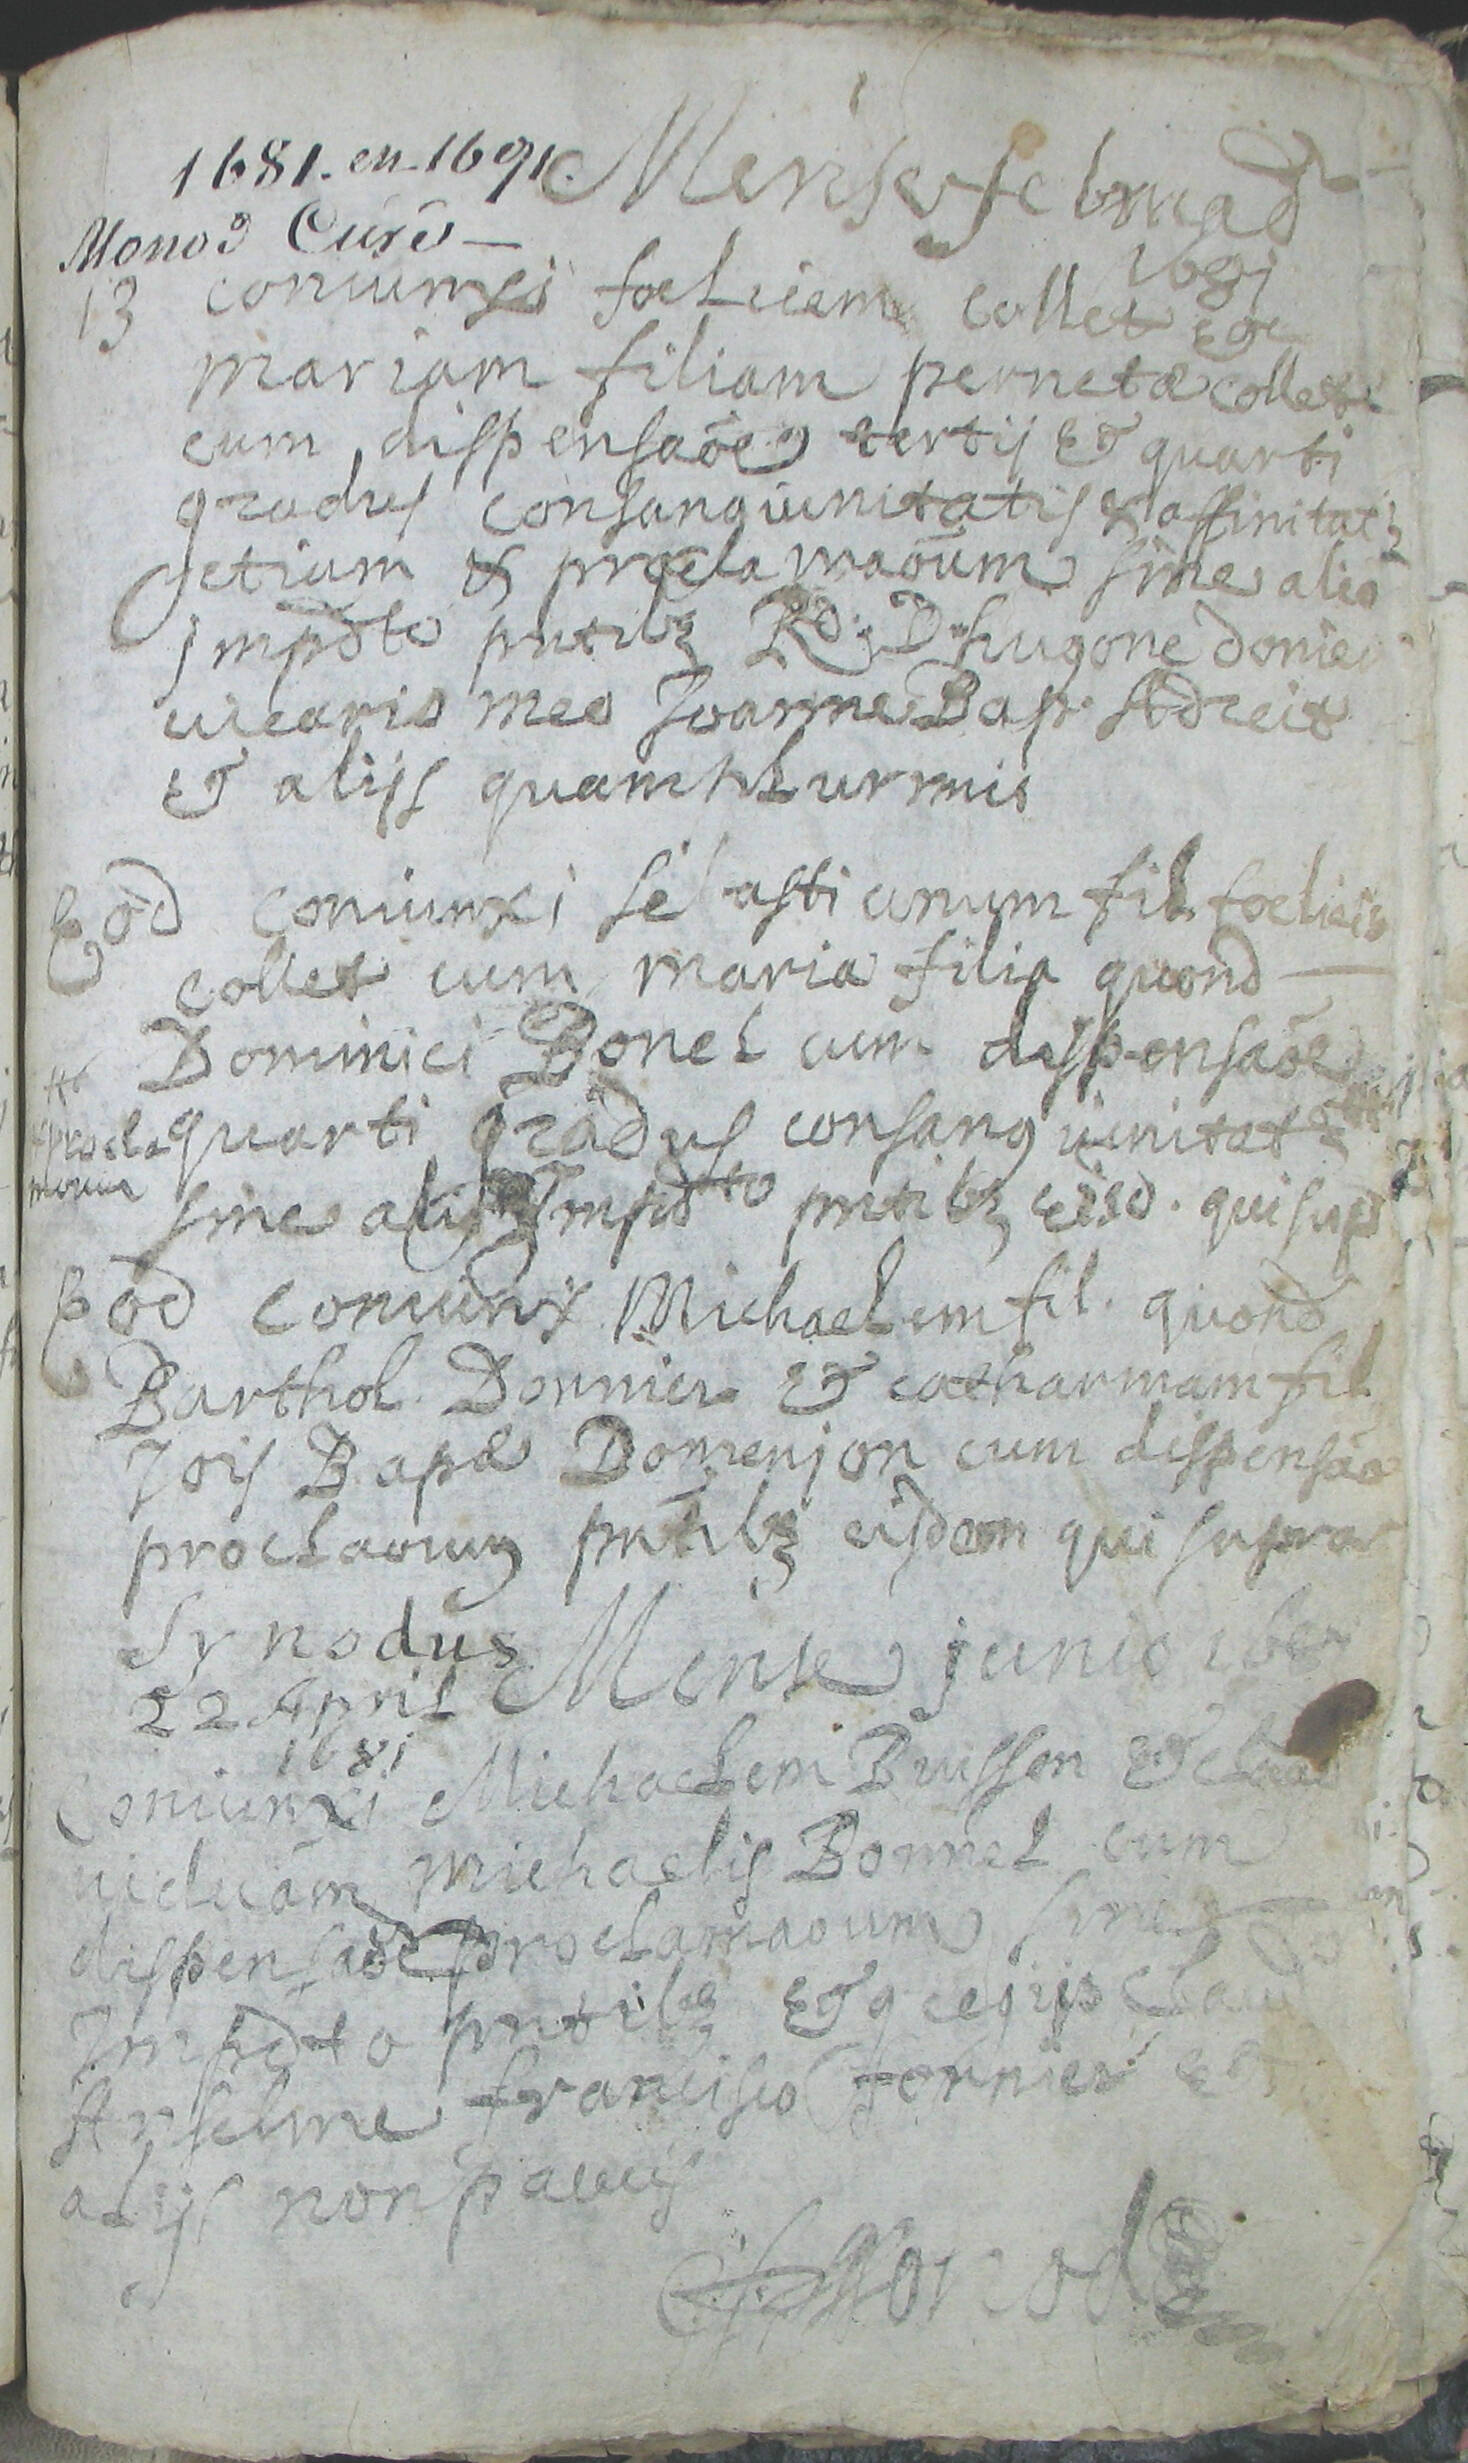 1681. en 1691.
Monod Curé
Mense februario
1681
13 coniunxi foelicem collet Et
mariam filiam pernetae collet
cum dispensaoe tertij Et quarti
gradus consanguinitatis & affinitatis
etium & proclamaoum sine alio
Impdto pntibz Rd. D. hugone donier
vicario meo Joanne Bap. Adreit
Et alijs quamplurimis
Eod coniunxi sebastianum fil foelicis
collet cum maria filia quond
Dominici Bonel cum dispensaoe
& procla quarti gradus consanguinitatis
sine alio Impdto pntibz eisd. qui supr
Eod coniunxi Michaelem fil. quond
Barthol. Donnier Et catharinam fil
Jois Bapae Domenjon cum dispensao
proclaoum pntibz eisdem qui supra
Synodus
22 April
1681
Mense junio 1681
Coniunxi Michaelem Buisson Et
viduam Michaelis Bonnel cum
dispensaoe proclamaoum sine
Impdto pntibz Egregijs
Anselme francisco fornier Et
alijs non paucis
Monod